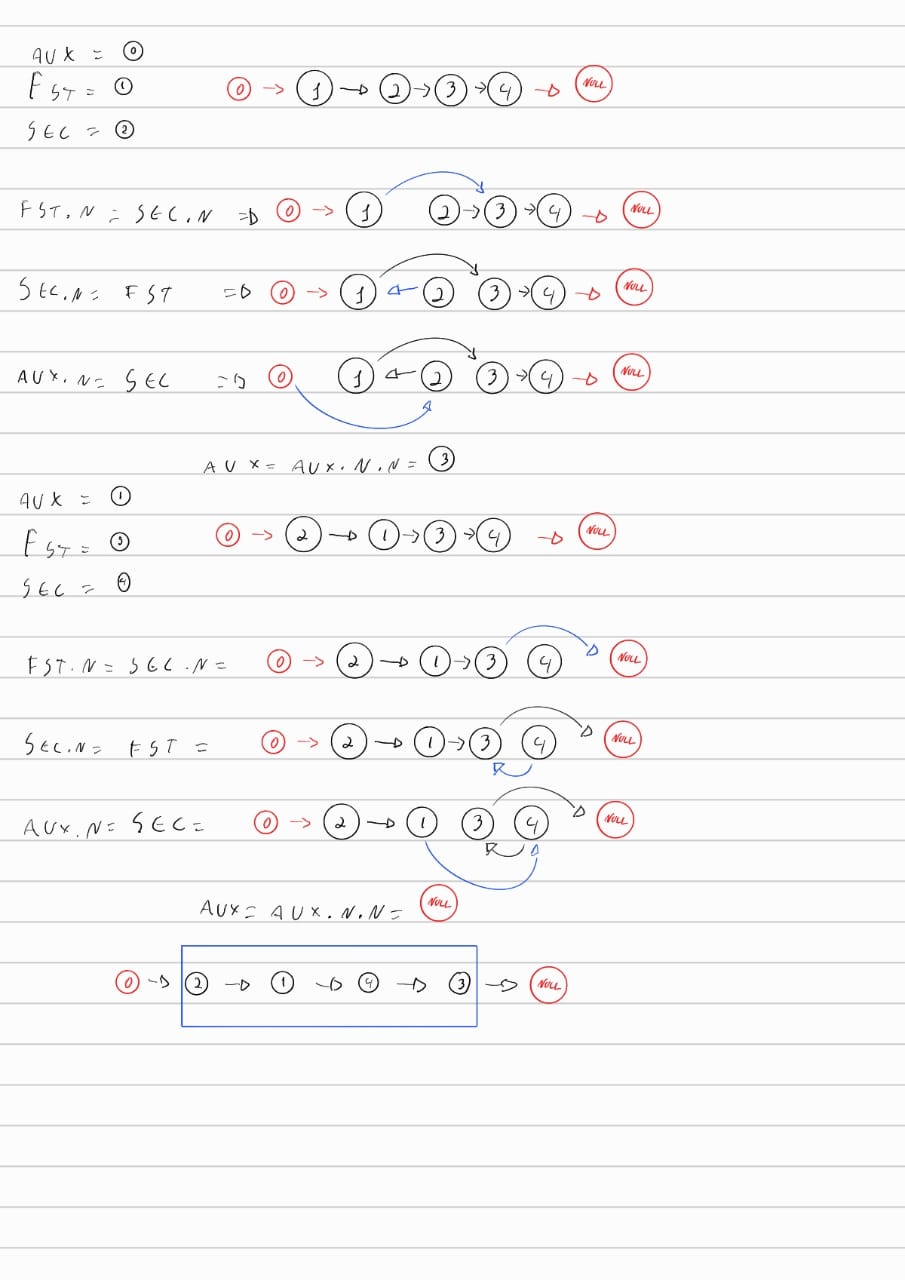 AUX = 0
FST = 1 0 → 1 → 2 → 3 → 4 → NULL
SEC = 2
FST.N = SEC.N => 0 → 1 2 → 3 → 4 → NULL
SEC.N = FST => 0 → 1 ← 2 3 → 4 → NULL
AUX.N = SEC => 0 1 ← 2 3 → 4 → NULL
AUX = AUX.N.N = 3
AUX = 1
FST = 3 0 → 2 → 1 → 3 → 4 → NULL
SEC = 4
FST.N = SEC.N = 0 → 2 → 1 → 3 4 NULL
SEC.N = FST = 0 → 2 → 1 → 3 4 NULL
AUX.N = SEC = 0 → 2 → 1 3 4 NULL
AUX = AUX.N.N = NULL
0 → 2 → 1 → 4 → 3 → NULL